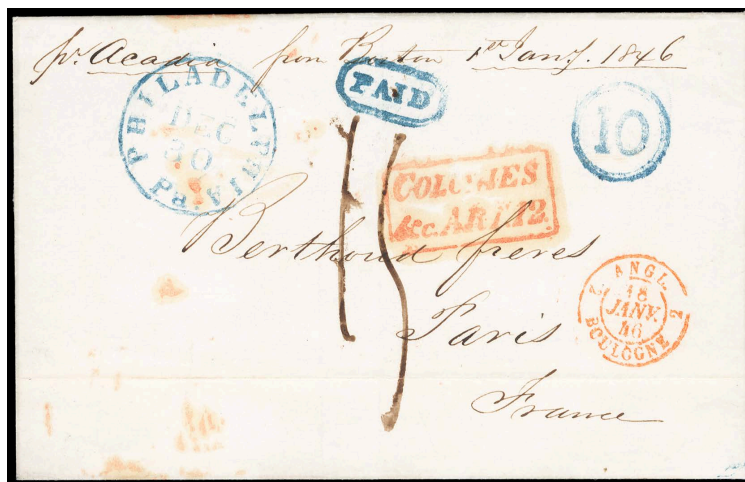 pr. Acadia from Boston 1st Jany. 1846
PHILADELPHIA Pa.
DEC
30
PAID
10
COLONIES
&c. ART. 12.
15
Berthoud freres
Paris
France
2 ANGL. 2
18
JANV.
46
BOULOGNE